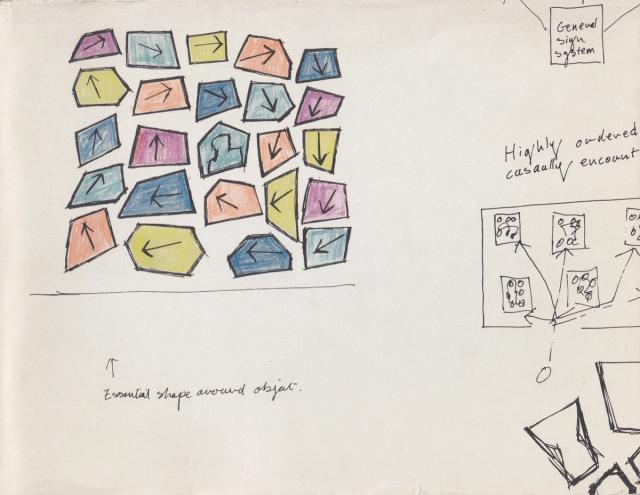 General
sign
system
Highly ordered
casually encount
Essential shape around objat.